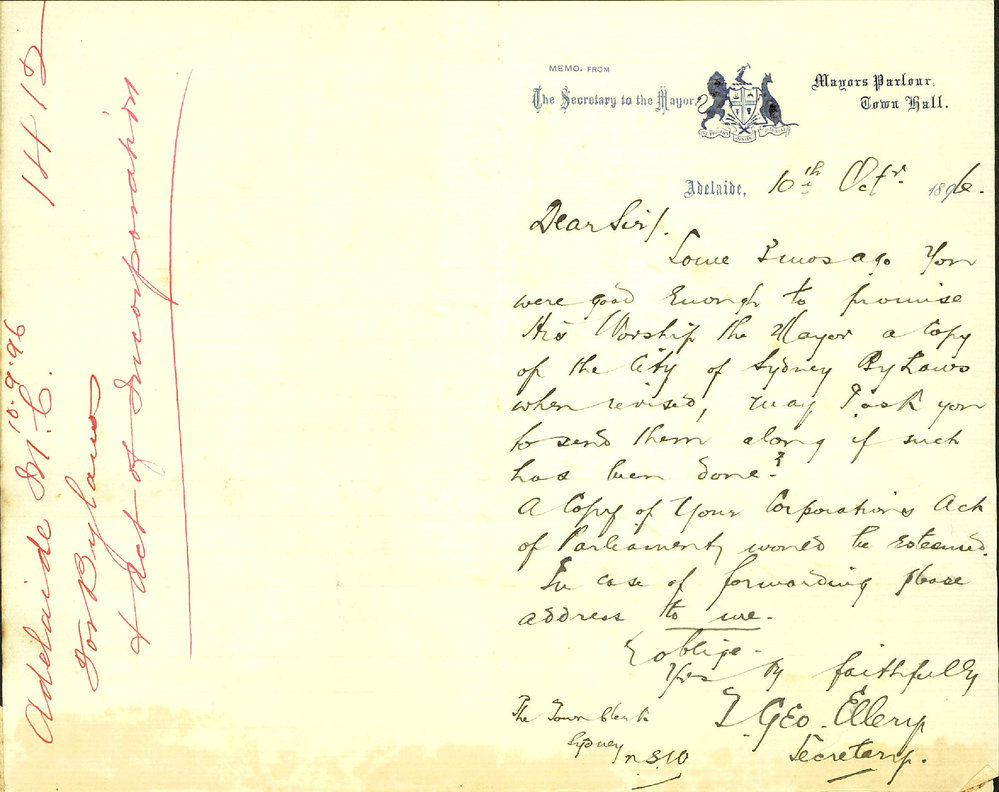 1412
Adelaide M.C.
10.9.96
For Bylaws
& Act of Incorporation
MEMO. FROM
The Secretary to the Mayor.
Mayors Parlour,
Town Hall.
Adelaide, 10th Octr. 1896.
Dear Sir/.
Some 3 mos ago you
were good Enough to promise
His Worship the Mayor a Copy
of the City of Sydney By Laws
when revised, may I ask you
to send them along if such
has been done?
A Copy of your Corporations Act
of Parliament would be esteemed.
In case of forwarding please
address to me.
& oblige.
Yrs faithfully
T Geo. Ellery
Secretary.
The Town Clerk
Sydney
N.S.W